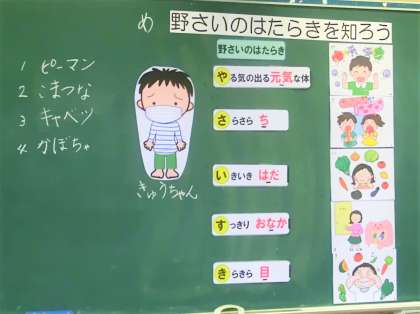 め 野さいのはたらきを知ろう
野さいのはたらき
1 ピーマン
2 こまつな
3 キャベツ
4 かぼちゃ
きゅうちゃん
やる気の出る元気な体
さらさら ち
いきいき はだ
すっきり おなか
きらきら 目